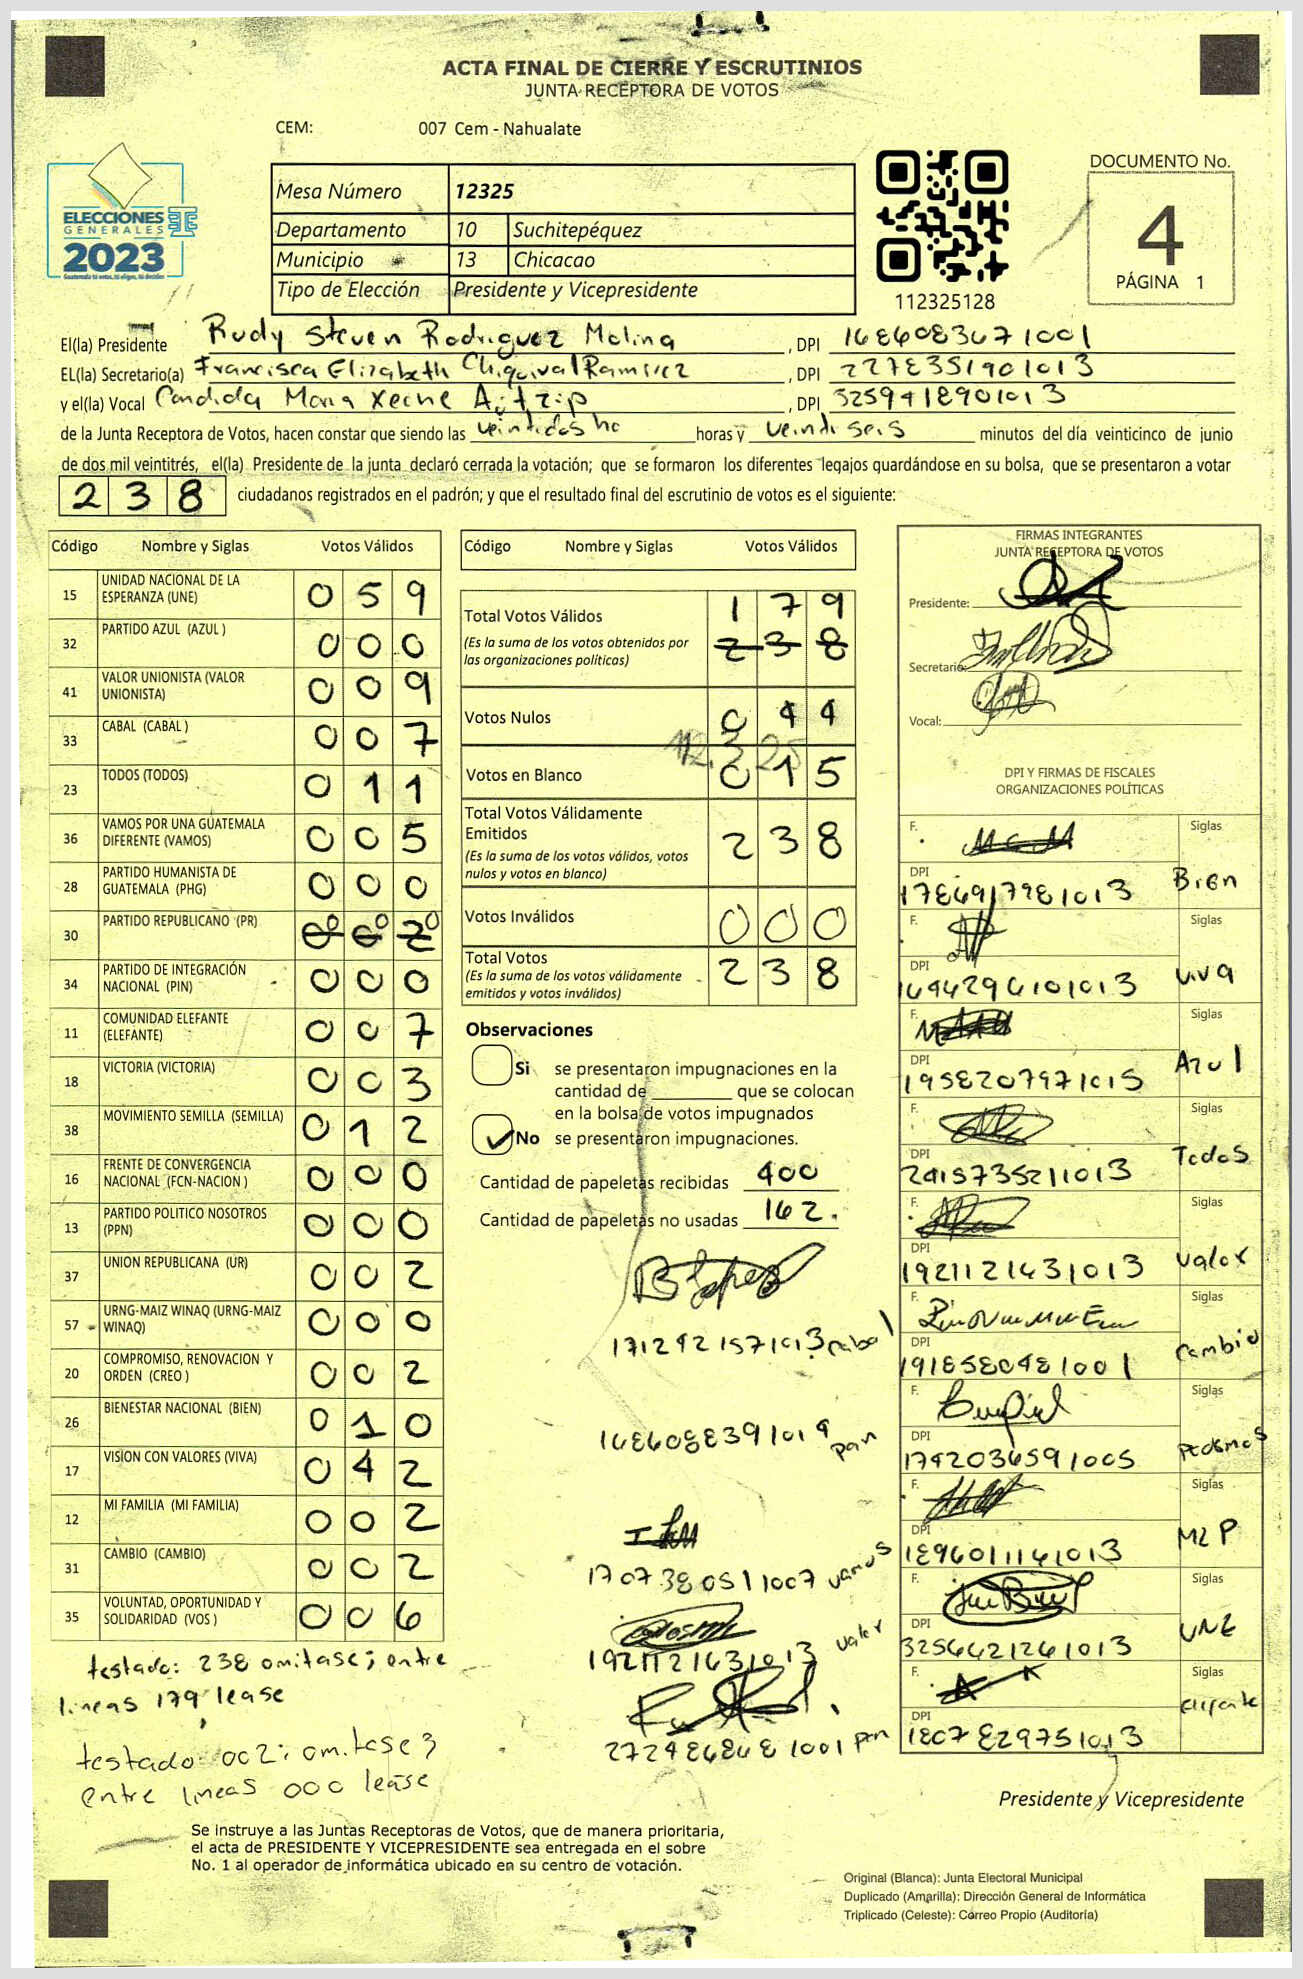 ACTA FINAL DE CIERRE Y ESCRUTINIOS
JUNTA RECEPTORA DE VOTOS
CEM: 007 Cem - Nahualate
ELECCIONES
GENERALES
2023
Mesa Número 12325
Departamento 10 Suchitepéquez
Municipio 13 Chicacao
Tipo de Elección Presidente y Vicepresidente
112325128
DOCUMENTO No.
4
PÁGINA 1
El(la) Presidente Rudy Steven Rodriguez Molina, DPI 1686083671001
EL(la) Secretario(a) Francisca Elizabeth Chiquival Ramirez, DPI 2278351901013
y el(la) Vocal Candida Maria Xeche Ajtzip, DPI 3259418901013
de la Junta Receptora de Votos, hacen constar que siendo las veintidos ho horas y veindi seis minutos del día veinticinco de junio
de dos mil veintitrés, el(la) Presidente de la junta declaró cerrada la votación; que se formaron los diferentes legajos guardándose en su bolsa, que se presentaron a votar
238 ciudadanos registrados en el padrón; y que el resultado final del escrutinio de votos es el siguiente:
Código Nombre y Siglas Votos Válidos
15 UNIDAD NACIONAL DE LA ESPERANZA (UNE) 059
32 PARTIDO AZUL (AZUL ) 000
41 VALOR UNIONISTA (VALOR UNIONISTA) 009
33 CABAL (CABAL ) 007
23 TODOS (TODOS) 011
36 VAMOS POR UNA GUATEMALA DIFERENTE (VAMOS) 005
28 PARTIDO HUMANISTA DE GUATEMALA (PHG) 000
30 PARTIDO REPUBLICANO (PR) 002 000
34 PARTIDO DE INTEGRACIÓN NACIONAL (PIN) 000
11 COMUNIDAD ELEFANTE (ELEFANTE) 007
18 VICTORIA (VICTORIA) 003
38 MOVIMIENTO SEMILLA (SEMILLA) 012
16 FRENTE DE CONVERGENCIA NACIONAL (FCN-NACION ) 000
13 PARTIDO POLITICO NOSOTROS (PPN) 000
37 UNION REPUBLICANA (UR) 002
57 URNG-MAIZ WINAQ (URNG-MAIZ WINAQ) 000
20 COMPROMISO, RENOVACION Y ORDEN (CREO ) 002
26 BIENESTAR NACIONAL (BIEN) 010
17 VISION CON VALORES (VIVA) 042
12 MI FAMILIA (MI FAMILIA) 002
31 CAMBIO (CAMBIO) 002
35 VOLUNTAD, OPORTUNIDAD Y SOLIDARIDAD (VOS ) 006
testado: 238 omitase; entre
lineas 179 lease
testado: 002: omitase }
entre lineas 000 lease
Código Nombre y Siglas Votos Válidos
Total Votos Válidos 179
(Es la suma de los votos obtenidos por las organizaciones políticas) 238
Votos Nulos 044
Votos en Blanco 015
Total Votos Válidamente Emitidos 238
(Es la suma de los votos válidos, votos nulos y votos en blanco)
Votos Inválidos 000
Total Votos 238
(Es la suma de los votos válidamente emitidos y votos inválidos)
Observaciones
Si se presentaron impugnaciones en la
cantidad de ________ que se colocan
en la bolsa de votos impugnados
No se presentaron impugnaciones.
Cantidad de papeletas recibidas 400
Cantidad de papeletas no usadas 162.
B Lopez
1712421571013 cabal
1686088391014 pan
1707380511007 vamos
1921121631013 valor
2724868681001 pan
FIRMAS INTEGRANTES
JUNTA RECEPTORA DE VOTOS
Presidente:
Secretario:
Vocal:
DPI Y FIRMAS DE FISCALES
ORGANIZACIONES POLÍTICAS
F. Siglas
DPI 1786917981013 Bien
F. Siglas
DPI 1694296101013 viva
F. Siglas
DPI 1958207971015 Azul
F. Siglas
DPI 2415735211013 Todos
F. Siglas
DPI 1921121631013 valor
F. Siglas
DPI 1918580481001 cambio
F. Siglas
DPI 1742036591005 podemos
F. Siglas
DPI 1896011161013 MLP
F. Siglas
DPI 3256421261013 UNE
F. Siglas
DPI 1807829751013 elefante
Presidente y Vicepresidente
Se instruye a las Juntas Receptoras de Votos, que de manera prioritaria,
el acta de PRESIDENTE Y VICEPRESIDENTE sea entregada en el sobre
No. 1 al operador de informática ubicado en su centro de votación.
Original (Blanca): Junta Electoral Municipal
Duplicado (Amarilla): Dirección General de Informática
Triplicado (Celeste): Correo Propio (Auditoría)